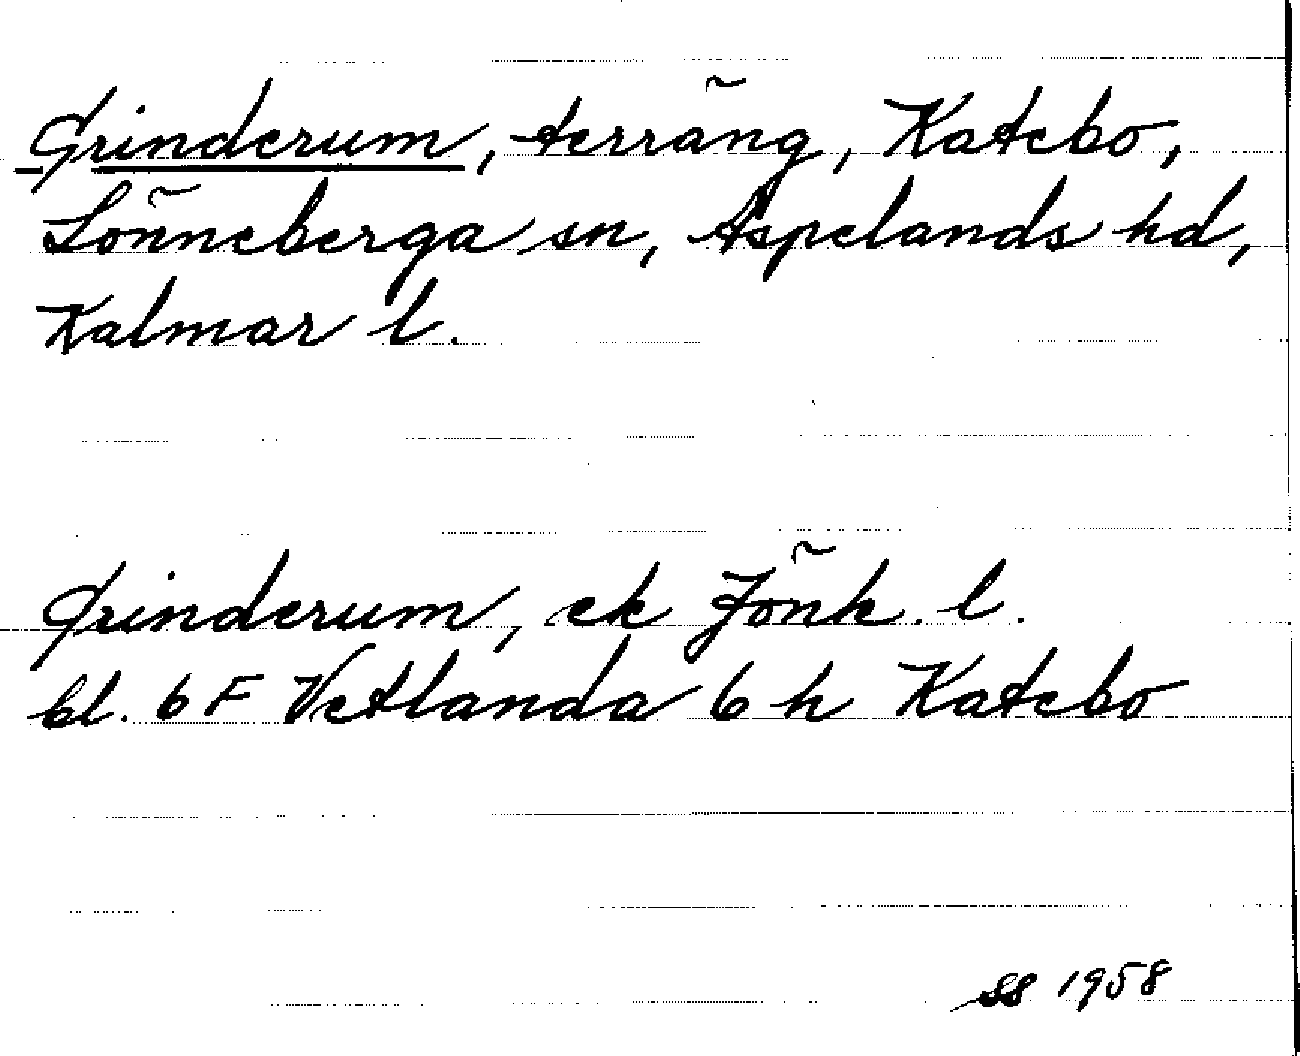 Grinderum, terräng, Katebo,
Lönneberga sn, Aspelands hd,
Kalmar l.
Grinderum, ek Jönk. l.
bl. 6 F Vetlanda 6 h Katebo
SS 1958